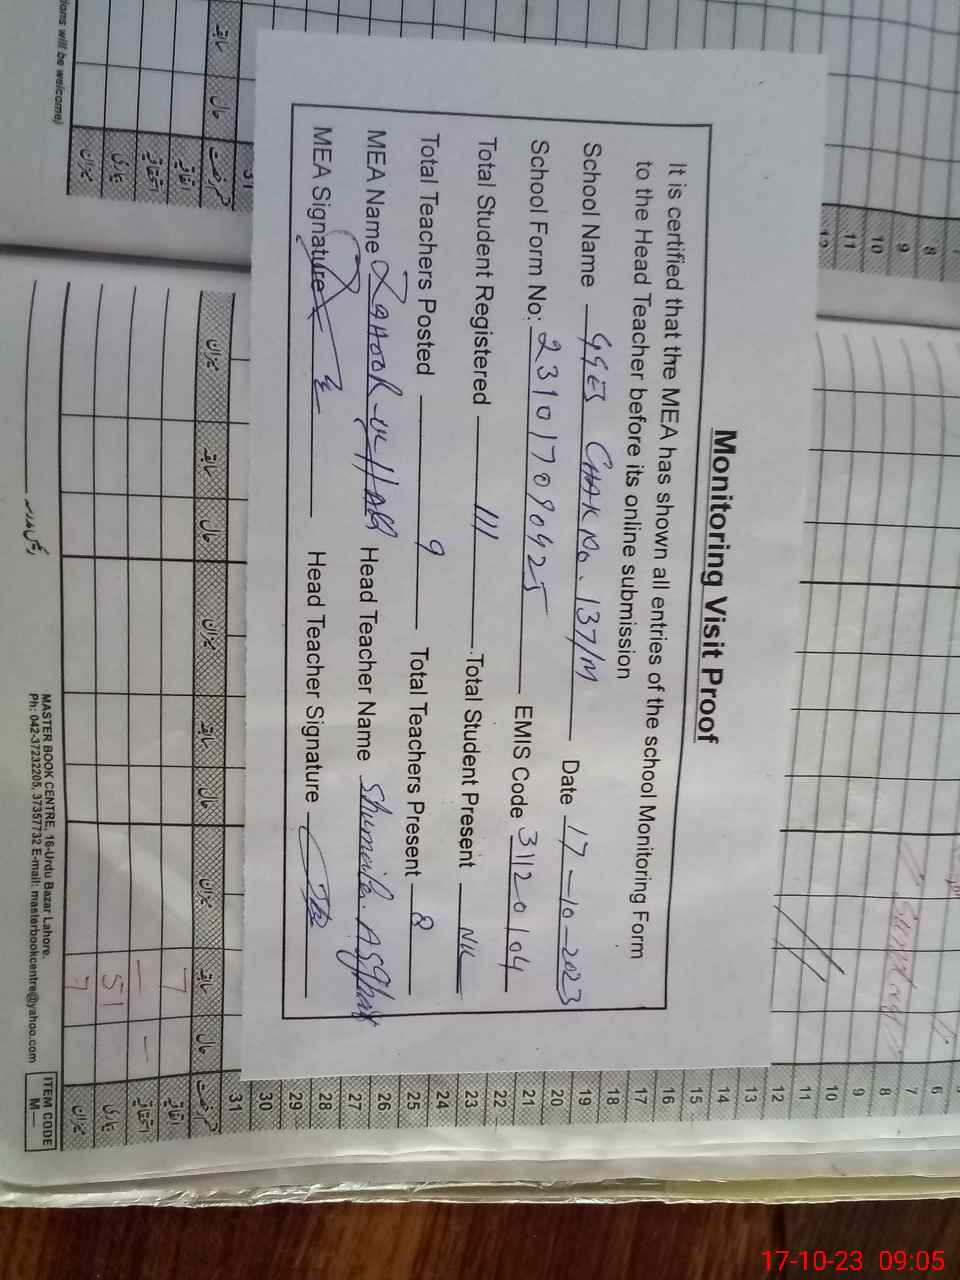 Monitoring Visit Proof
It is certified that the MEA has shown all entries of the school Monitoring Form
to the Head Teacher before its online submission
School Name GGES CHAK No. 137/M Date 17-10-2023
School Form No: 231017090925 EMIS Code 31120104
Total Student Registered 111 Total Student Present NIL
Total Teachers Posted 9 Total Teachers Present 8
MEA Name ul Haq Head Teacher Name Shumaila Asghar
MEA Signature Head Teacher Signature
ions will be welcome)
سابقہ
حال
میزان
سابقہ
حال
میزان
سابقہ
حال
میزان
سابقہ
حال
قسم رخصت
اتفاقیہ 7
استحقاقیہ – –
بیماری 51
میزان 7
رئیس مدرسہ
7
8
9
10
11
12
6
7
8
9
10
11
12
13
14
15
16
17
18
19
20
21
22
23
24
25
26
27
28
29
30
31
MASTER BOOK CENTRE, 16-Urdu Bazar Lahore.
Ph: 042-37232205, 37357732 E-mail: masterbookcentre@yahoo.com
ITEM CODE
M—
17-10-23 09:05